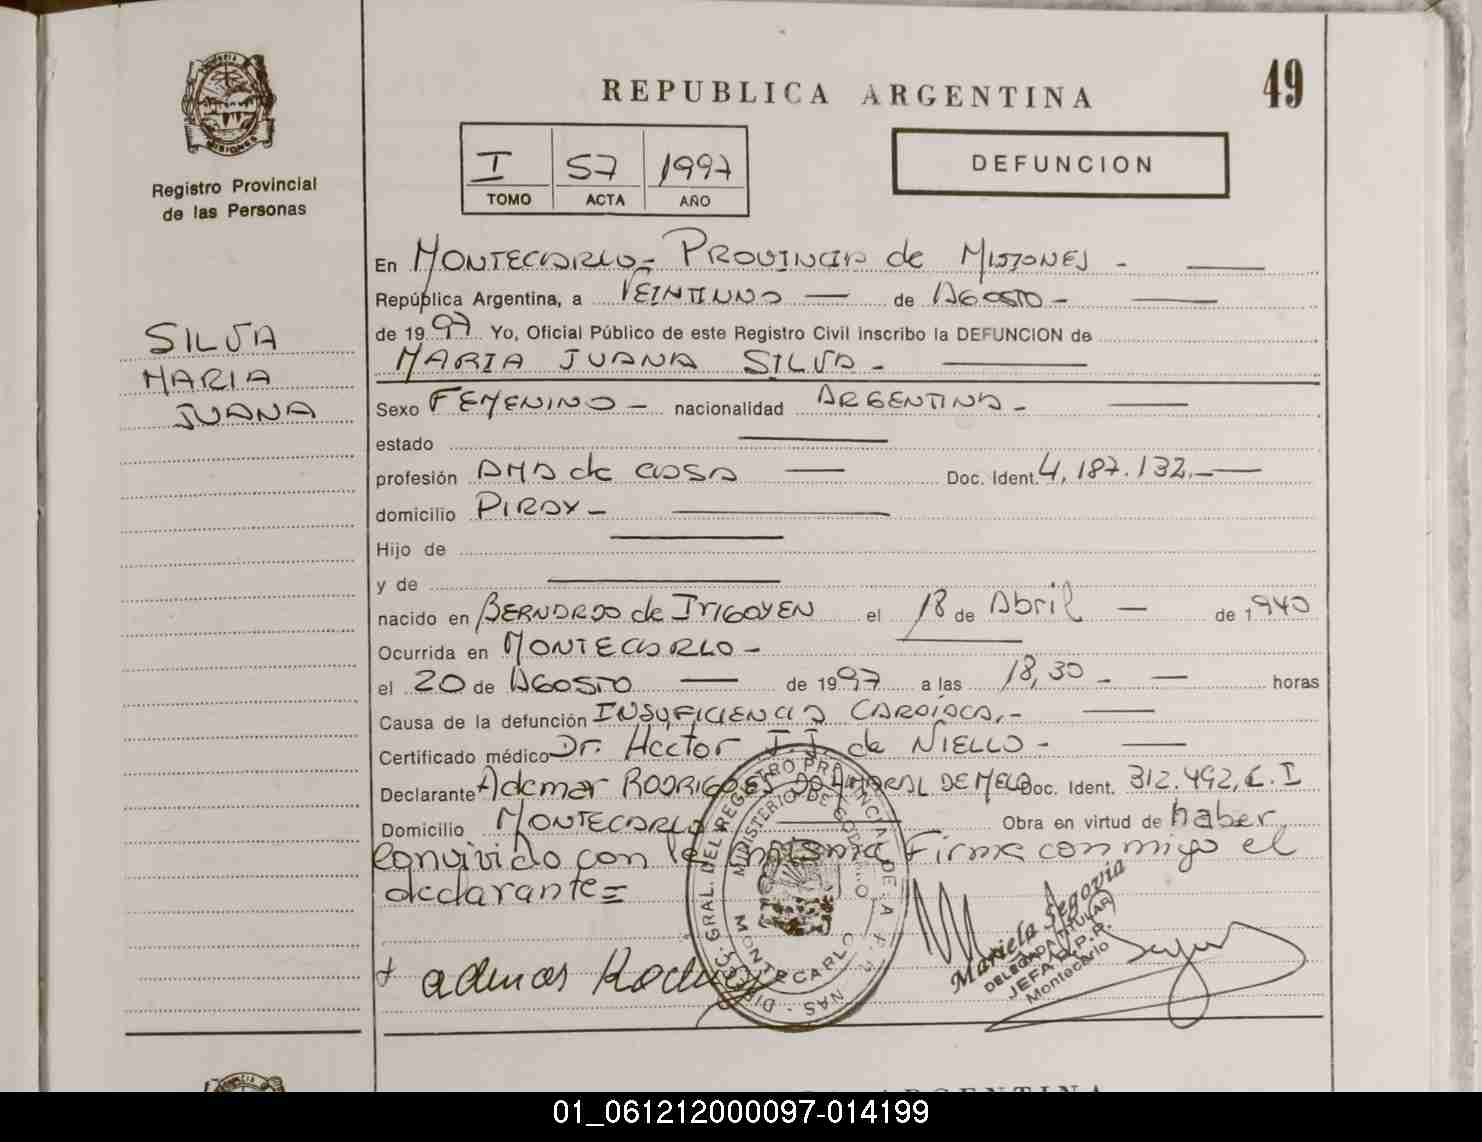 REPUBLICA ARGENTINA
49
MISIONES
Registro Provincial
de las Personas
I 57 1997
TOMO ACTA AÑO
DEFUNCION
SILVA
MARIA
JUANA
En MONTECARLO - PROVINCIA de MISIONES -
República Argentina, a VEINTIUNO de AGOSTO -
de 1997 Yo, Oficial Público de este Registro Civil inscribo la DEFUNCION de
MARIA JUANA SILVA -
Sexo FEMENINO - nacionalidad ARGENTINA -
estado
profesión AMA de CASA Doc. Ident. 4,187.132.-
domicilio PIRAY -
Hijo de
y de
nacido en BERNARDO de IRIGOYEN el 18 de Abril de 1940
Ocurrida en MONTECARLO -
el 20 de AGOSTO de 1997 a las 18,30 - horas
Causa de la defunción INSUFICIENCIA CARDIACA.-
Certificado médico Dr. Hector J.J. de NIELLO -
Declarante Ademar RODRIGUES DO AMARAL DE MELO Doc. Ident. 312.492, C.I
Domicilio MONTECARLO Obra en virtud de haber
convivido con la misma Firma conmigo el
declarante=
DIREC. GRAL. DEL REGISTRO PROVINCIAL DE LA P.P.
MINISTERIO DE GOBIERNO
MONTECARLO
MISIONES
ademar Rodrigues
Mariela Segovia
DELEGADA TITULAR
JEFA R.P.P.
Montecarlo
REPUBLICA ARGENTINA
01_061212000097-014199